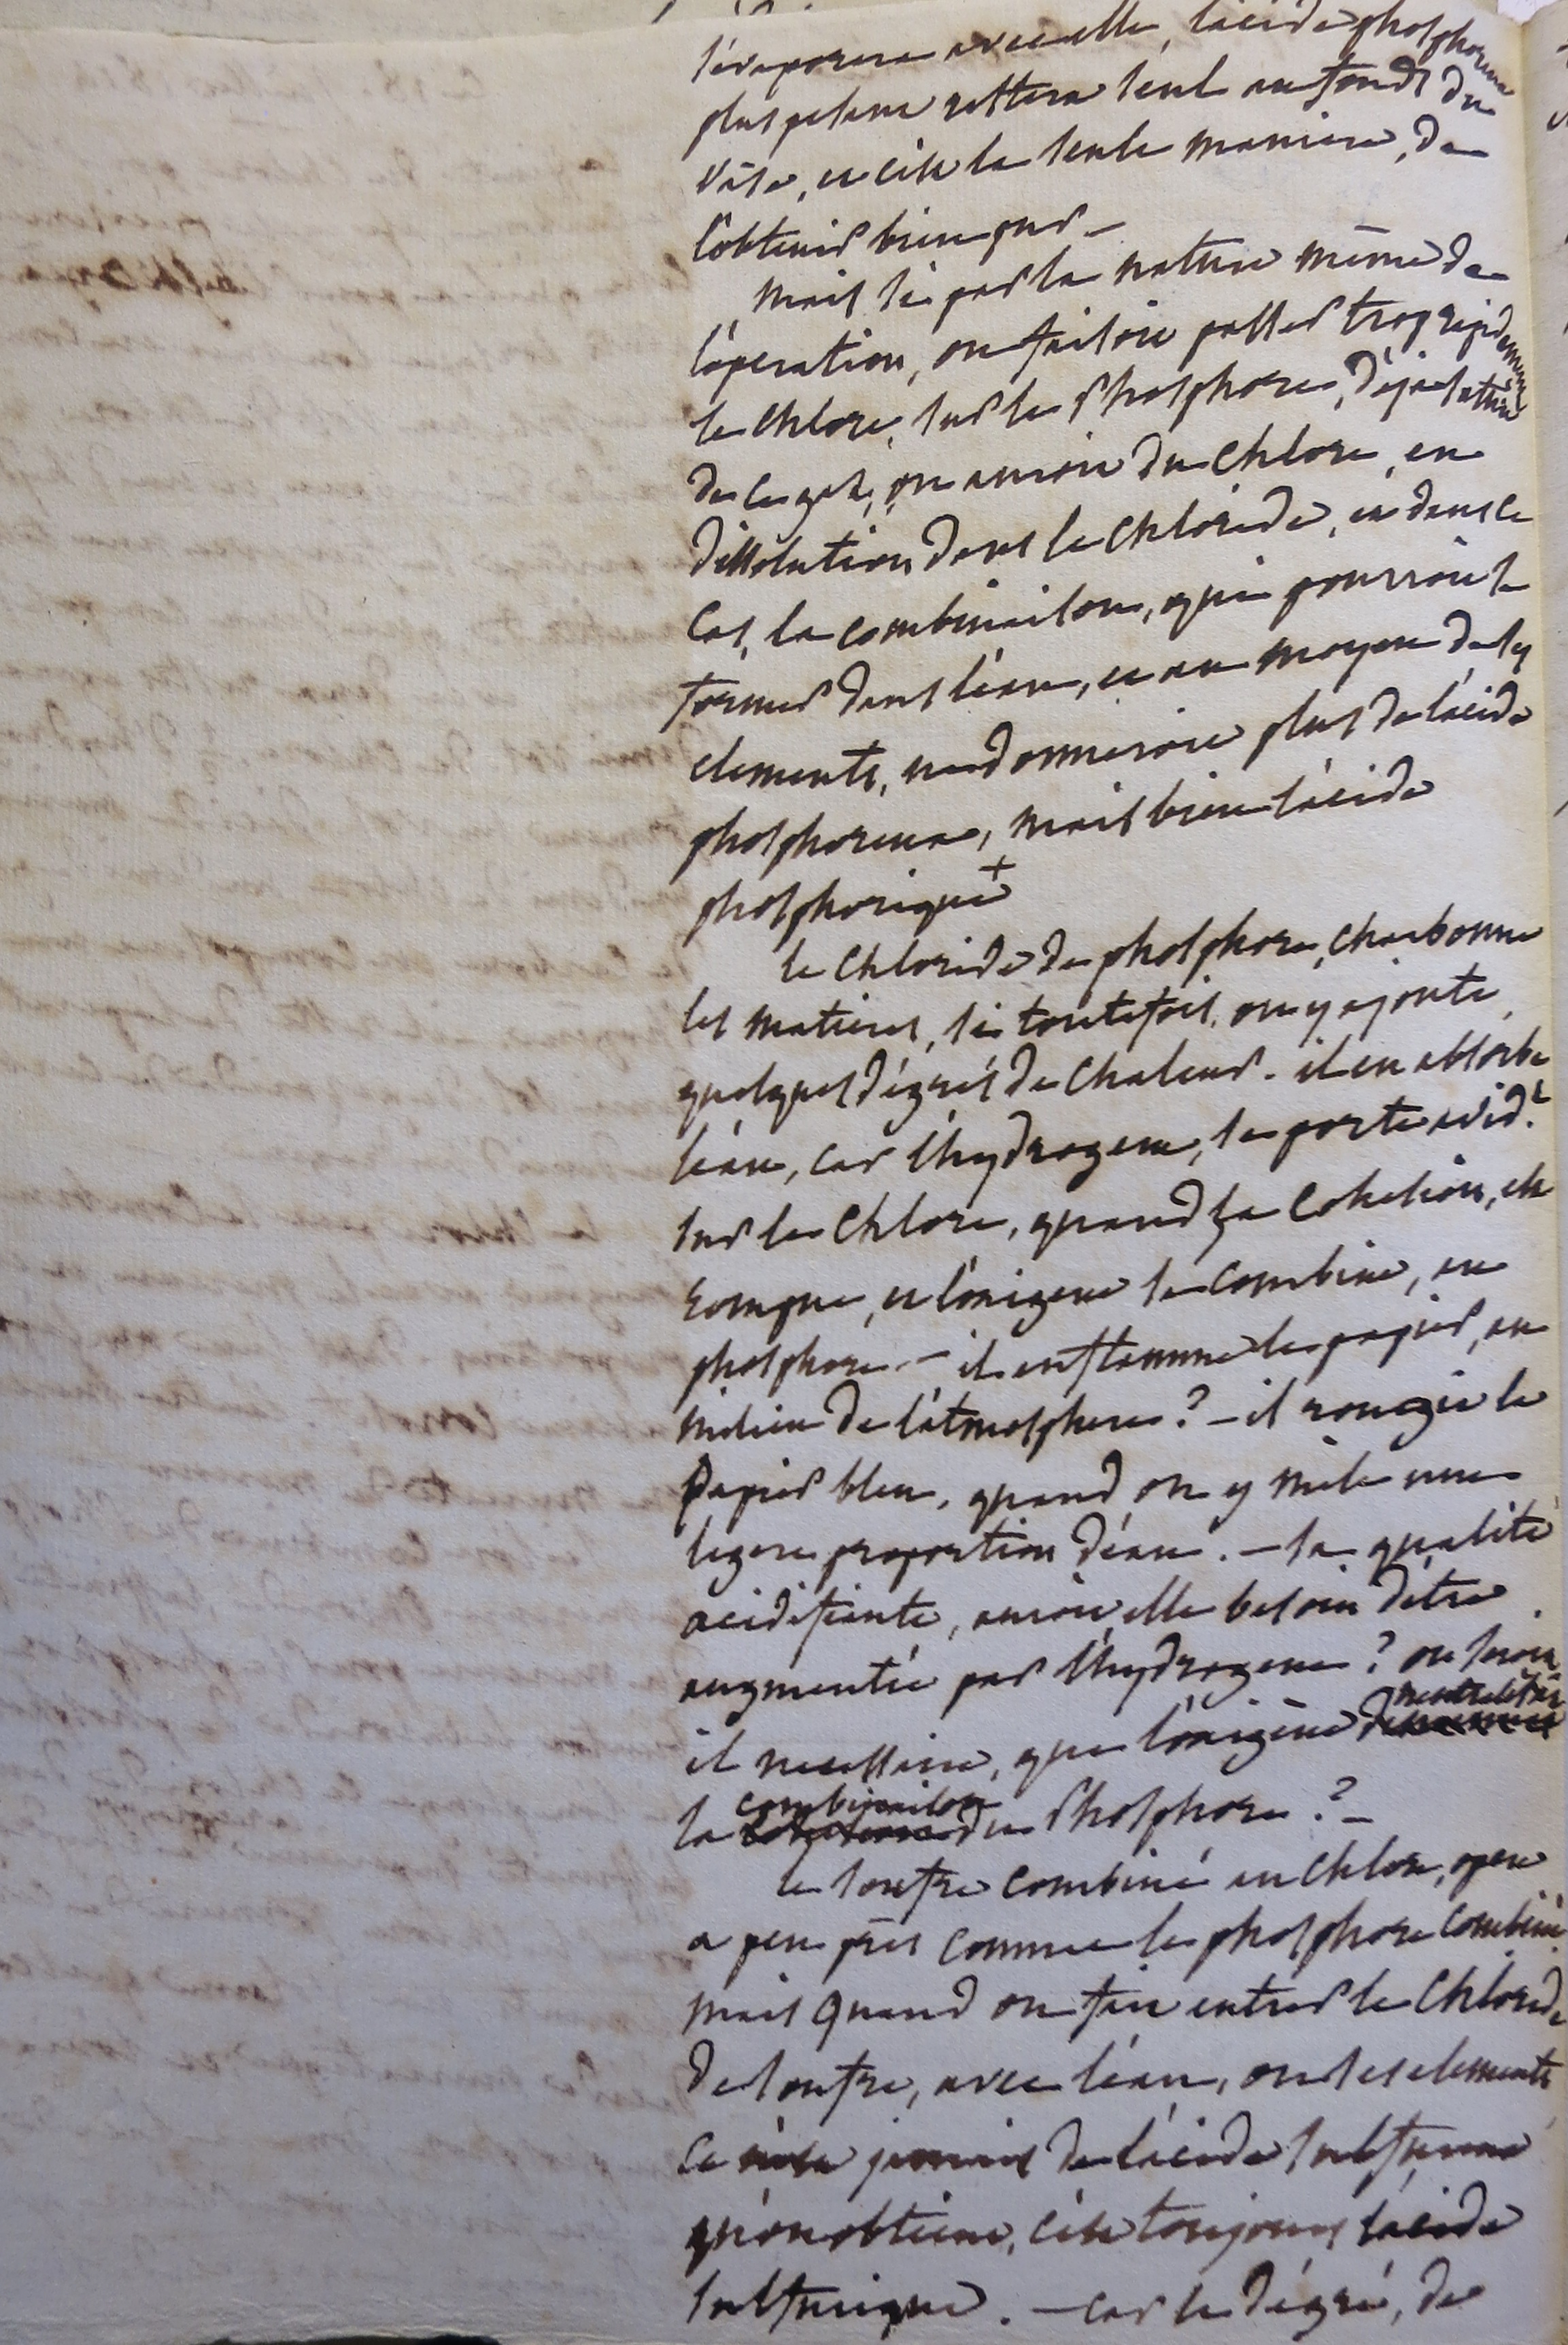 s'évaporera avec elle, l'acide phosphoreux
plus pesant restera seul au fonds du
vase, et c'est la seule maniere, de
l'obtenir bien pur –
mais si par la nature même de
l'opération, on faisoit passer trop rapidement
le chlore, sur le Phosphore, déja saturé
de ce gaz, on auroit du chlore, en
dissolution dans le chloride, et dans ce
cas, la combinaison, qui pourroit se
former dans l'eau, et au moyen de ses
elements, ne donneroit plus de l'acide
phosphoreux, mais bien l'acide
phosphorique +
le chloride de phosphore, charbonne
les matieres, si toutefois, on y ajoute
quelques dégrés de chaleur. il en absorbe
l'eau, car l'hydrogene, se porte avidt
sur le chlore, quand sa cohesion, est
rompue, et l'oxigene se combine, au
phosphore. – il enflamme le papier, au
milieu de l'atmosphere ? – il rougit le
Papier bleu, quand on y mêle une
legere proportion d'eau. – sa qualité
acidifiante, auroit elle besoin d'être
augmentée par l'hydrogene ? ou seroit
il necessaire, que l'oxigène neutralisât
la combinaison du Phosphore ? –
le soufre combiné au chlore, opere
a peu près comme le phosphore combiné
mais quand on fait entrer le chloride
de soufre, avec l'eau, ou ses elements
ce n'est jamais de l'acide sulfureux
qu'on obtient, c'est toujours l'acide
sulfurique. – car le dégré, de